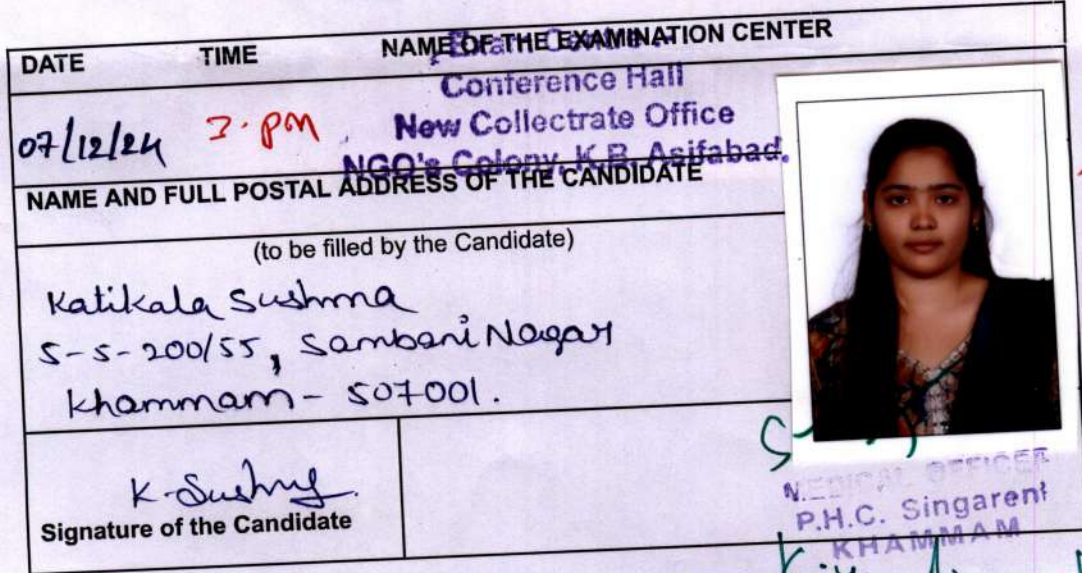 DATE TIME NAME OF THE EXAMINATION CENTER
Conference Hall
07/12/24 3. PM New Collectrate Office
NGO's Colony, K.B. Asifabad.
NAME AND FULL POSTAL ADDRESS OF THE CANDIDATE
(to be filled by the Candidate)
Katikala Sushma
5-5-200/55, Sambani Nagar
Khammam - 507001.
K. Sushma
Signature of the Candidate
MEDICAL OFFICER
P.H.C. Singareni
KHAMMAM